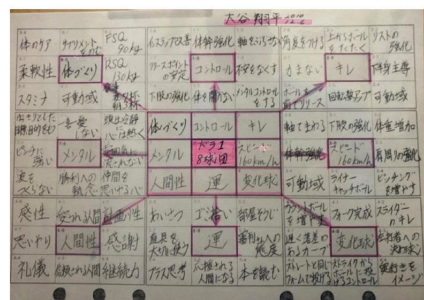 大谷翔平
体のケア サプリメントをのむ FSQ 90kg インステップ改善 体幹強化 軸をぶらさない 角度をつける 上からボールをたたく リストの強化
柔軟性 体づくり RSQ 130kg リリースポイントの安定 コントロール 不安をなくす 力まない キレ 下半身主導
スタミナ 可動域 下肢の強化 体を開かない メンタルコントロールをする ボールを前でリリース 回転数アップ 可動域
はっきりとした目標、目的をもつ 一喜一憂しない 頭は冷静に心は熱く 体づくり コントロール キレ 軸でまわる 下肢の強化 体重増加
ピンチに強い メンタル メンタル ドラ1 8球団 スピード 160km/h 体幹強化 スピード 160km/h 肩周りの強化
波をつくらない 勝利への執念 仲間を思いやる心 人間性 運 変化球 可動域 ライナーキャッチボール ピッチングを増やす
感性 愛される人間 計画性 あいさつ ゴミ拾い 部屋そうじ カウントボールを増やす フォーク完成 スライダーのキレ
思いやり 人間性 感謝 道具を大切に使う 運 審判さんへの態度 遅く落差のあるカーブ 変化球 左打者への決め球
礼儀 信頼される人間 継続力 プラス思考 応援される人間になる 本を読む ストレートと同じフォームで投げる ストライクからボールに投げるコントロール 奥行きをイメージ